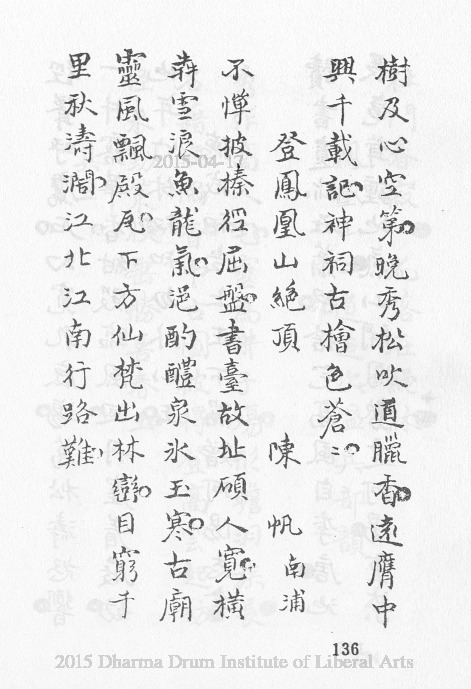 樹及心空第晚秀松吹道臘香遠膺中
興千載記神祠古檜色蒼〻
登鳳凰山絕頂 陳 帆 南浦
不憚披榛徑屈盤書臺故址碩人寬橫
犇雪浪魚龍氣浥酌醴泉氷玉寒古廟
靈風飄殿瓦下方仙梵出林巒目窮千
里秋濤濶江北江南行路難
136
2015-04-17
2015 Dharma Drum Institute of Liberal Arts